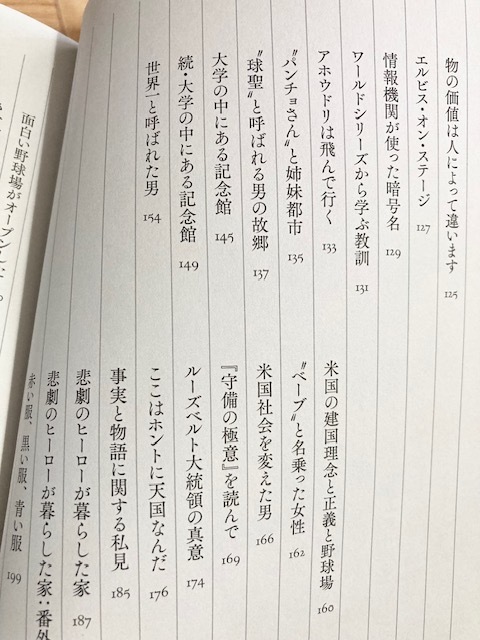 物の価値は人によって違います 125
エルビス・オン・ステージ 127
情報機関が使った暗号名 129
ワールドシリーズから学ぶ教訓 131
アホウドリは飛んで行く 133
〝パンチョさん〟と姉妹都市 135
〝球聖〟と呼ばれる男の故郷 137
大学の中にある記念館 145
続・大学の中にある記念館 149
世界一と呼ばれた男 154
米国の建国理念と正義と野球場 160
〝ベーブ〟と名乗った女性 162
米国社会を変えた男 166
『守備の極意』を読んで 169
ルーズベルト大統領の真意 174
ここはホントに天国なんだ 176
事実と物語に関する私見 185
悲劇のヒーローが暮らした家 187
悲劇のヒーローが暮らした家:番外
赤い服、黒い服、青い服 199
面白い野球場がオープンした